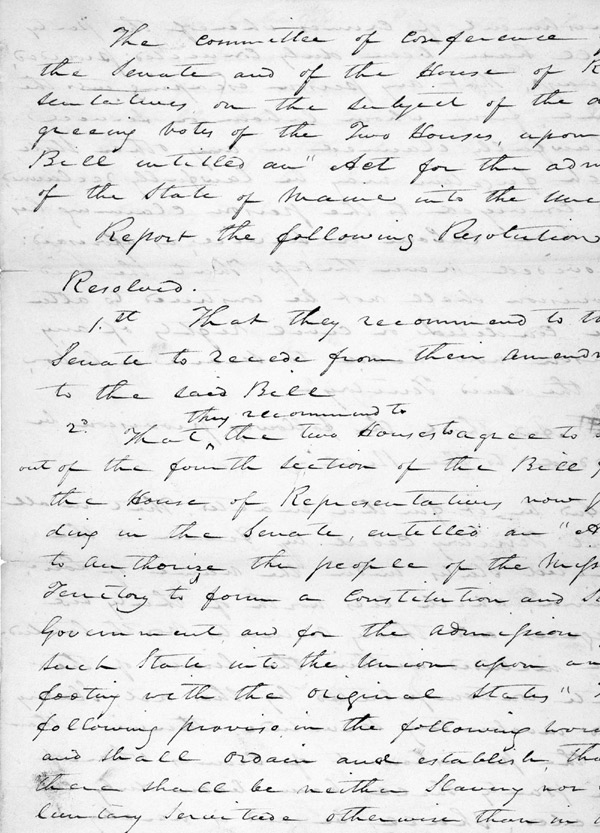 The committee of conference
the Senate and of the House of R
sentatives on the subject of the d
greeing votes of the Two Houses, upon
Bill entitled an "Act for the adm
of the State of Maine into the Uni
Report the following Resolution
Resolved.
1.st That they recommend to th
Senate to recede from their amendm
to the said Bill
they recommend to
2d. That ^ the two Houses to agree to
out of the fourth section of the Bill
the House of Representatives now p
ding in the Senate, entitled an "A
to authorize the people of the Miss
Territory to form a Constitution and S
Government, and for the admission
such State into the Union upon an
footing with the original States"
following proviso, in the following wor
and shall ordain and establish, tha
there shall be neither Slavery nor
luntary Servitude otherwise than in